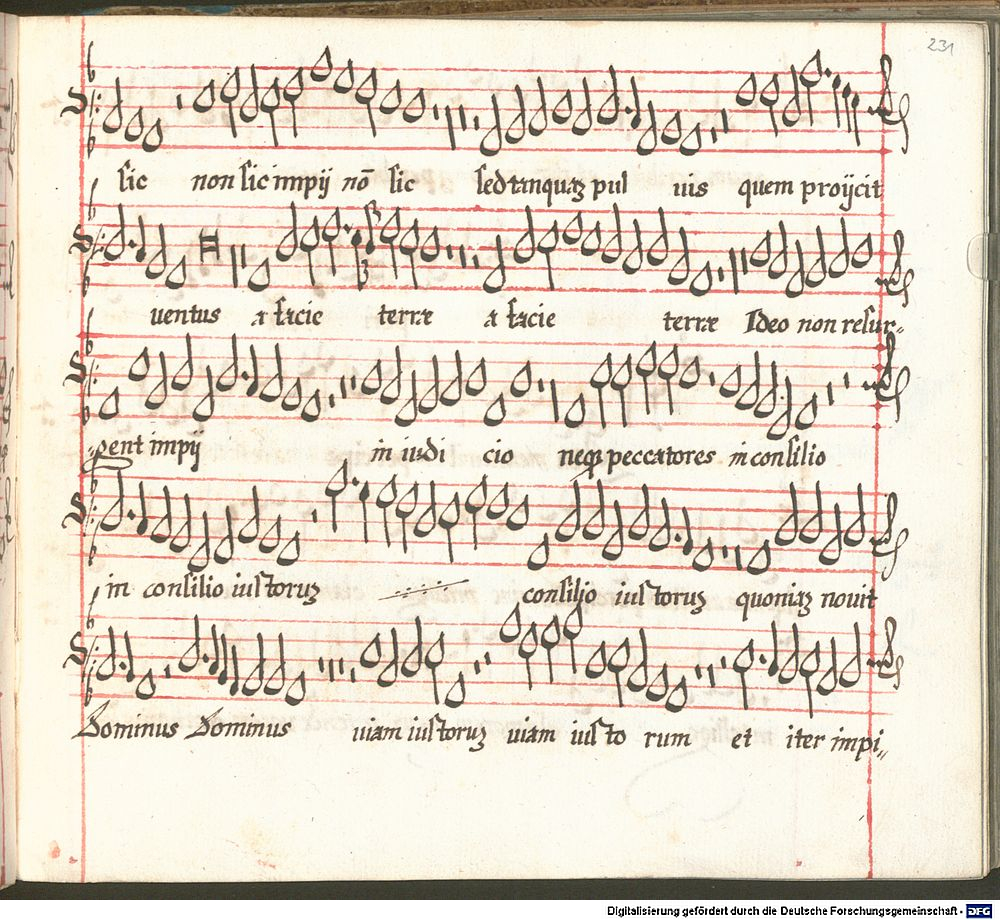 231
sic non sic impij nō sic sed tanquaʒ pul uis quem proijcit
uentus a facie terræ a facie terræ Ideo non resur-
gent impij in iudi cio neqʒ peccatores in consilio
in consilio iustoruʒ consilio iustoruʒ quoniaʒ nouit
Dominus Dominus uiam iustoruʒ uiam iusto rum et iter impi-
Digitalisierung gefördert durch die Deutsche Forschungsgemeinschaft - DFG